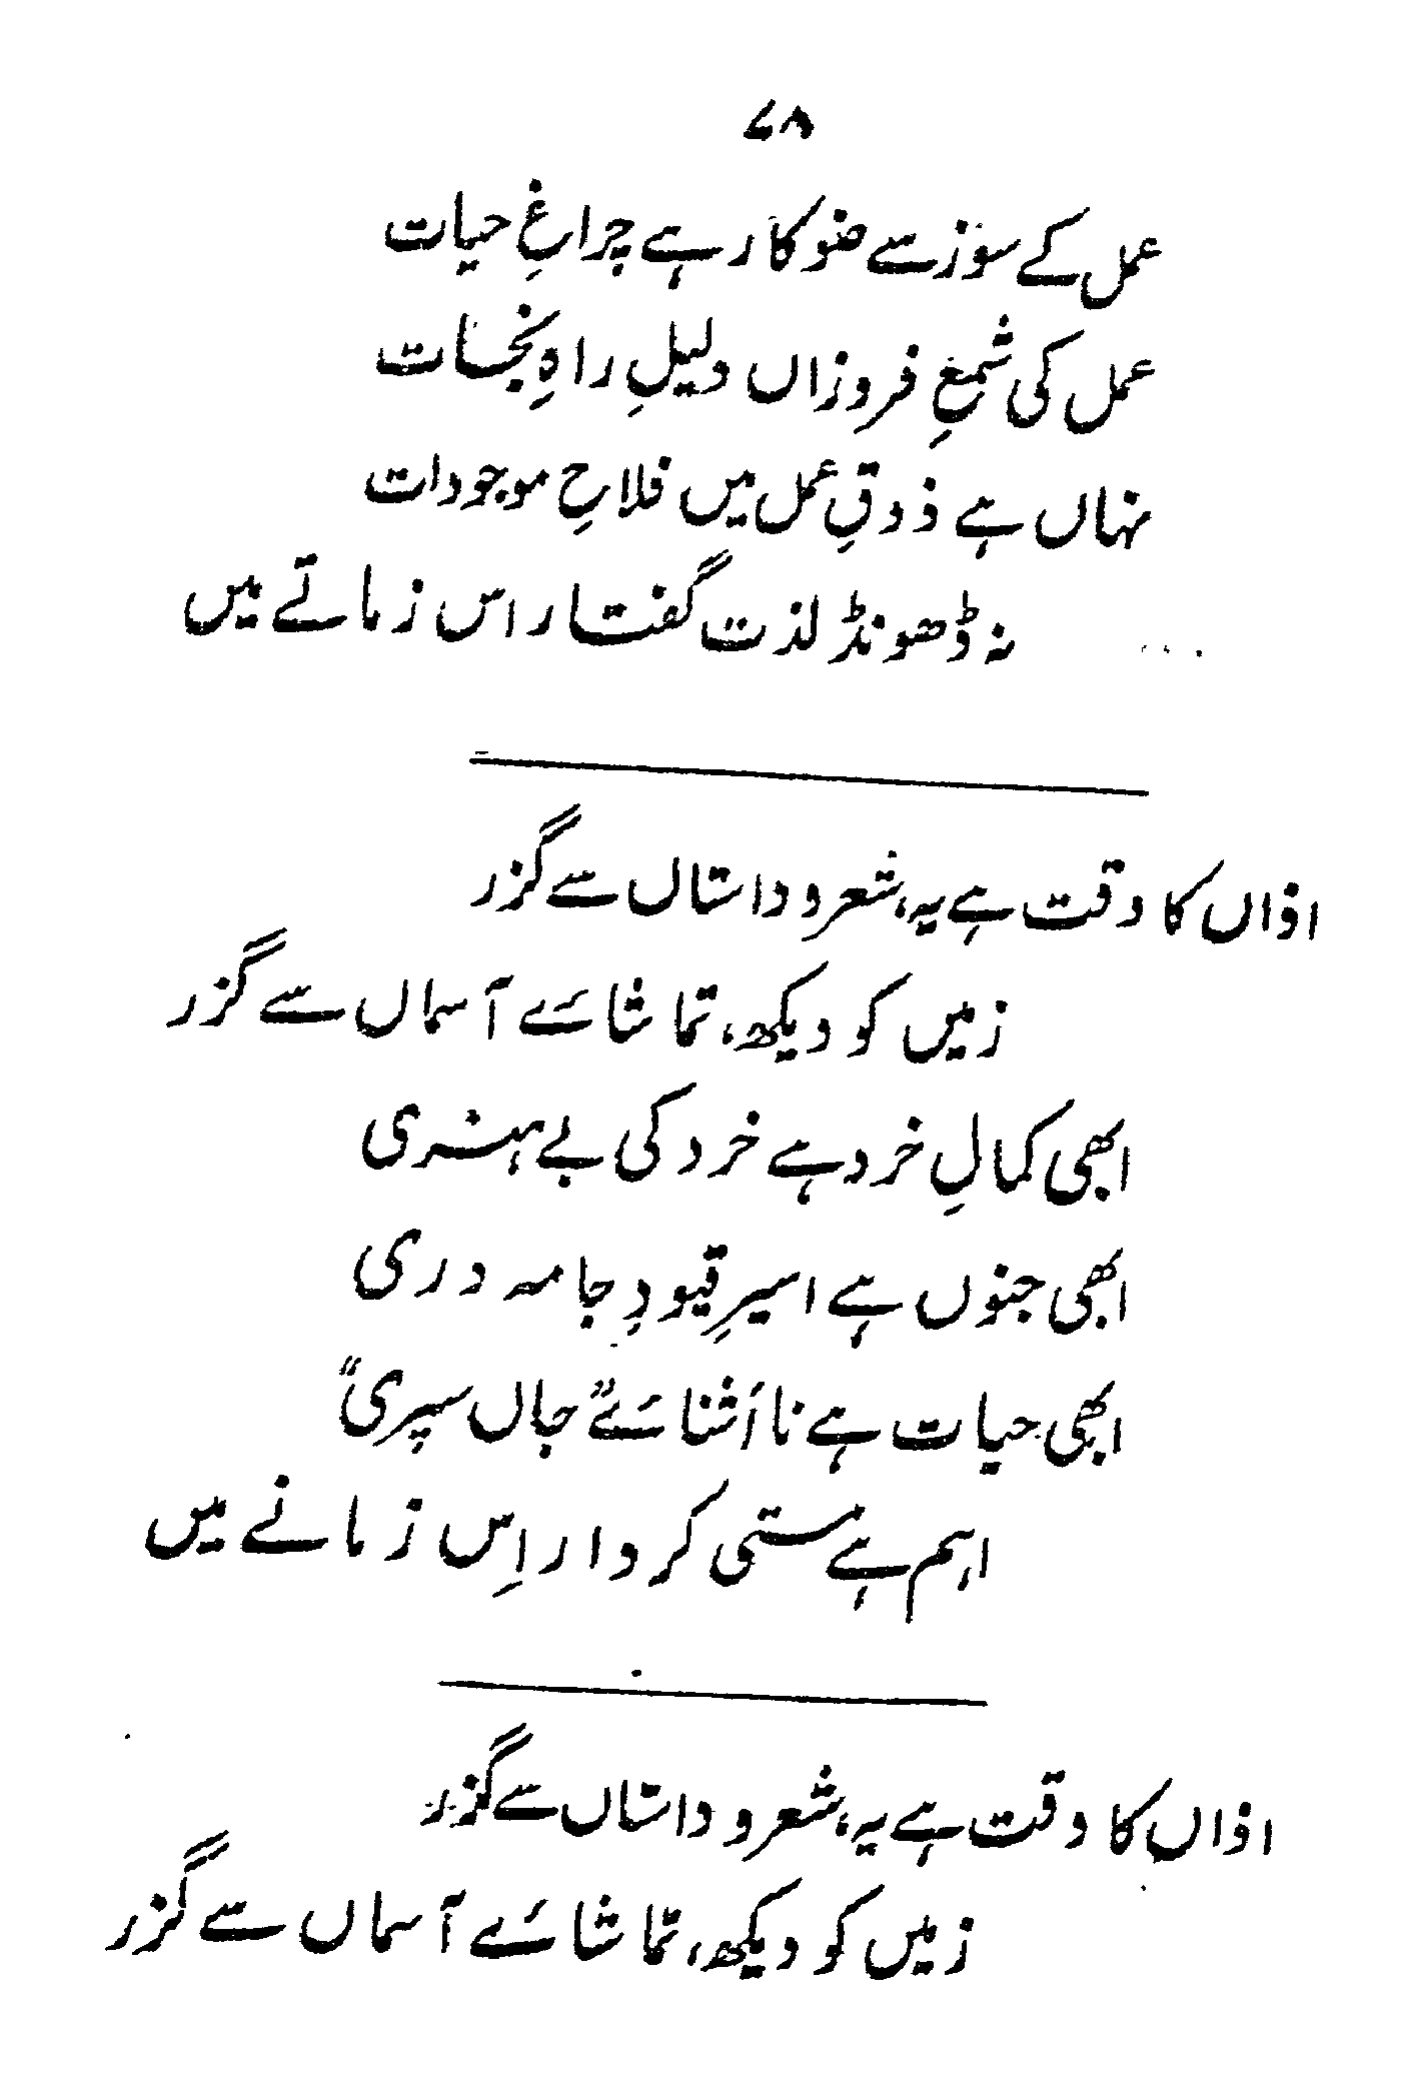 ۷۸
عمل کے سوز سے ضو کار ہے چراغِ حیات
عمل کی شمعِ فروزاں دلیلِ راہِ نجات
نہاں ہے ذوقِ عمل میں فلاحِ موجودات
نہ ڈھونڈ لذت گفتار اس زماتے میں
اذاں کا وقت ہے یہ، شعر و داستاں سے گزر
زمیں کو دیکھ، تماشائے آسماں سے گزر
ابھی کمالِ خرد ہے خرد کی بے ہنری
ابھی جنوں ہے اسیرِ قیودِ جامہ دری
ابھی حیات ہے ناآشنائے "جاں سپری"
اہم ہے مستی کردار اِس زمانے میں
اذاں کا وقت ہے یہ، شعر و داستاں سے گزر
زمیں کو دیکھ، تماشائے آسماں سے گزر